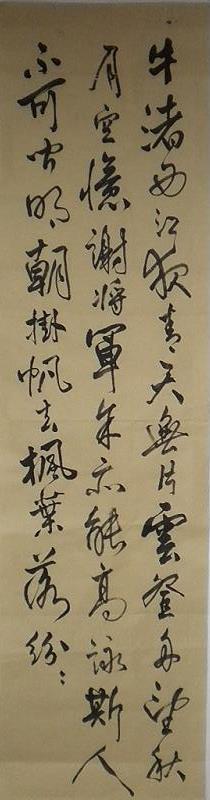 牛渚西江夜青天無片雲登舟望秋
月空憶謝將軍余亦能高詠斯人
不可聞明朝掛帆去楓葉落紛〻